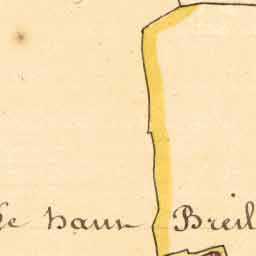 Le haut Breil